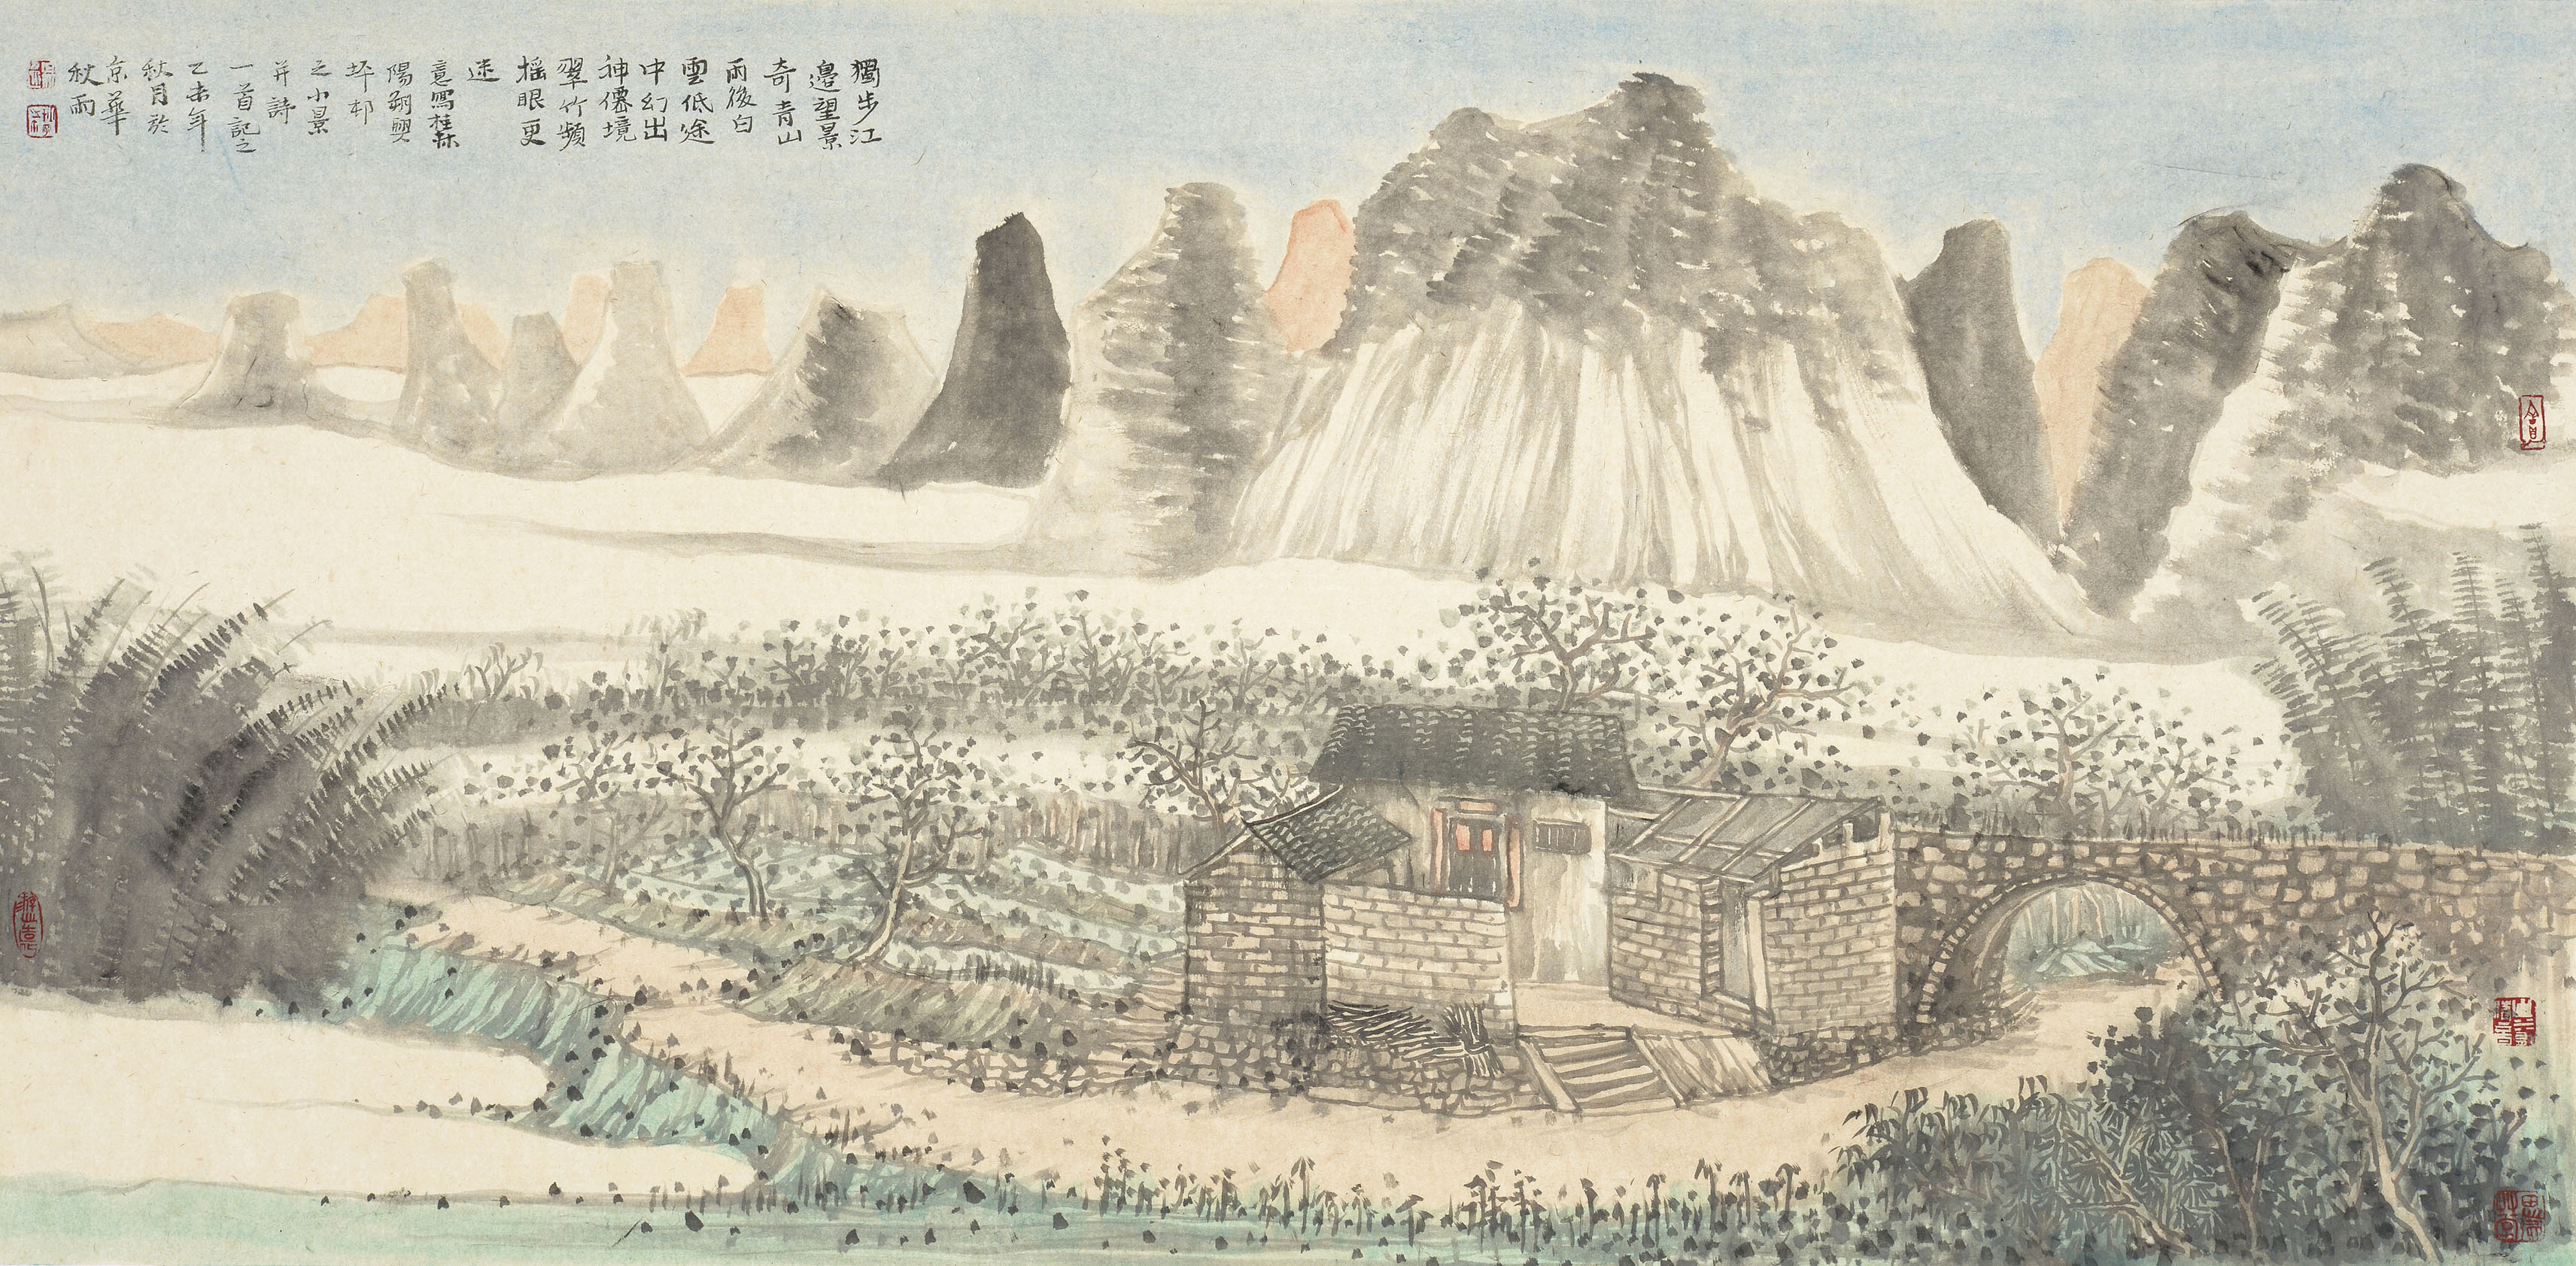 獨步江
邊望景
奇青山
雨後白
雲低途
中幻出
神僊境
翠竹頻
搖眼更
迷
意寫桂林
陽朔興
坪邨
之小景
并詩
一首記之
乙未年
秋月於
京華
秋雨